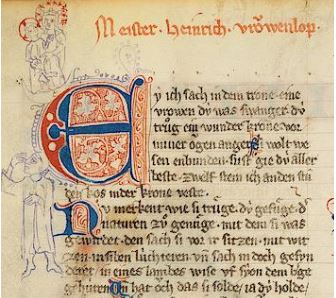 Meister · heinrich · vrŏwenlop ·
Ey ich sach in dem trone · eine
vrowen dy was swanger · dy
trůg ein wunder krone · vor
miner ougen anger · si wolt we
sen enbunden · sust gie dy aller
beste · zwelf stein ich an den stu
den kos in der krone veste ·
Nu merkent wie si trůge · dy gefůge · d
naturen zů genůge · mit dem si was
gewirdet · den sach si vor ir sitzen · mit wit
zen · in siben lůchteren · vn̄ sach in doch gesyn
deret · in eines lambes wise · vf syon dem b'ge
gehuren · in hat och das si solde · ia dy holde /